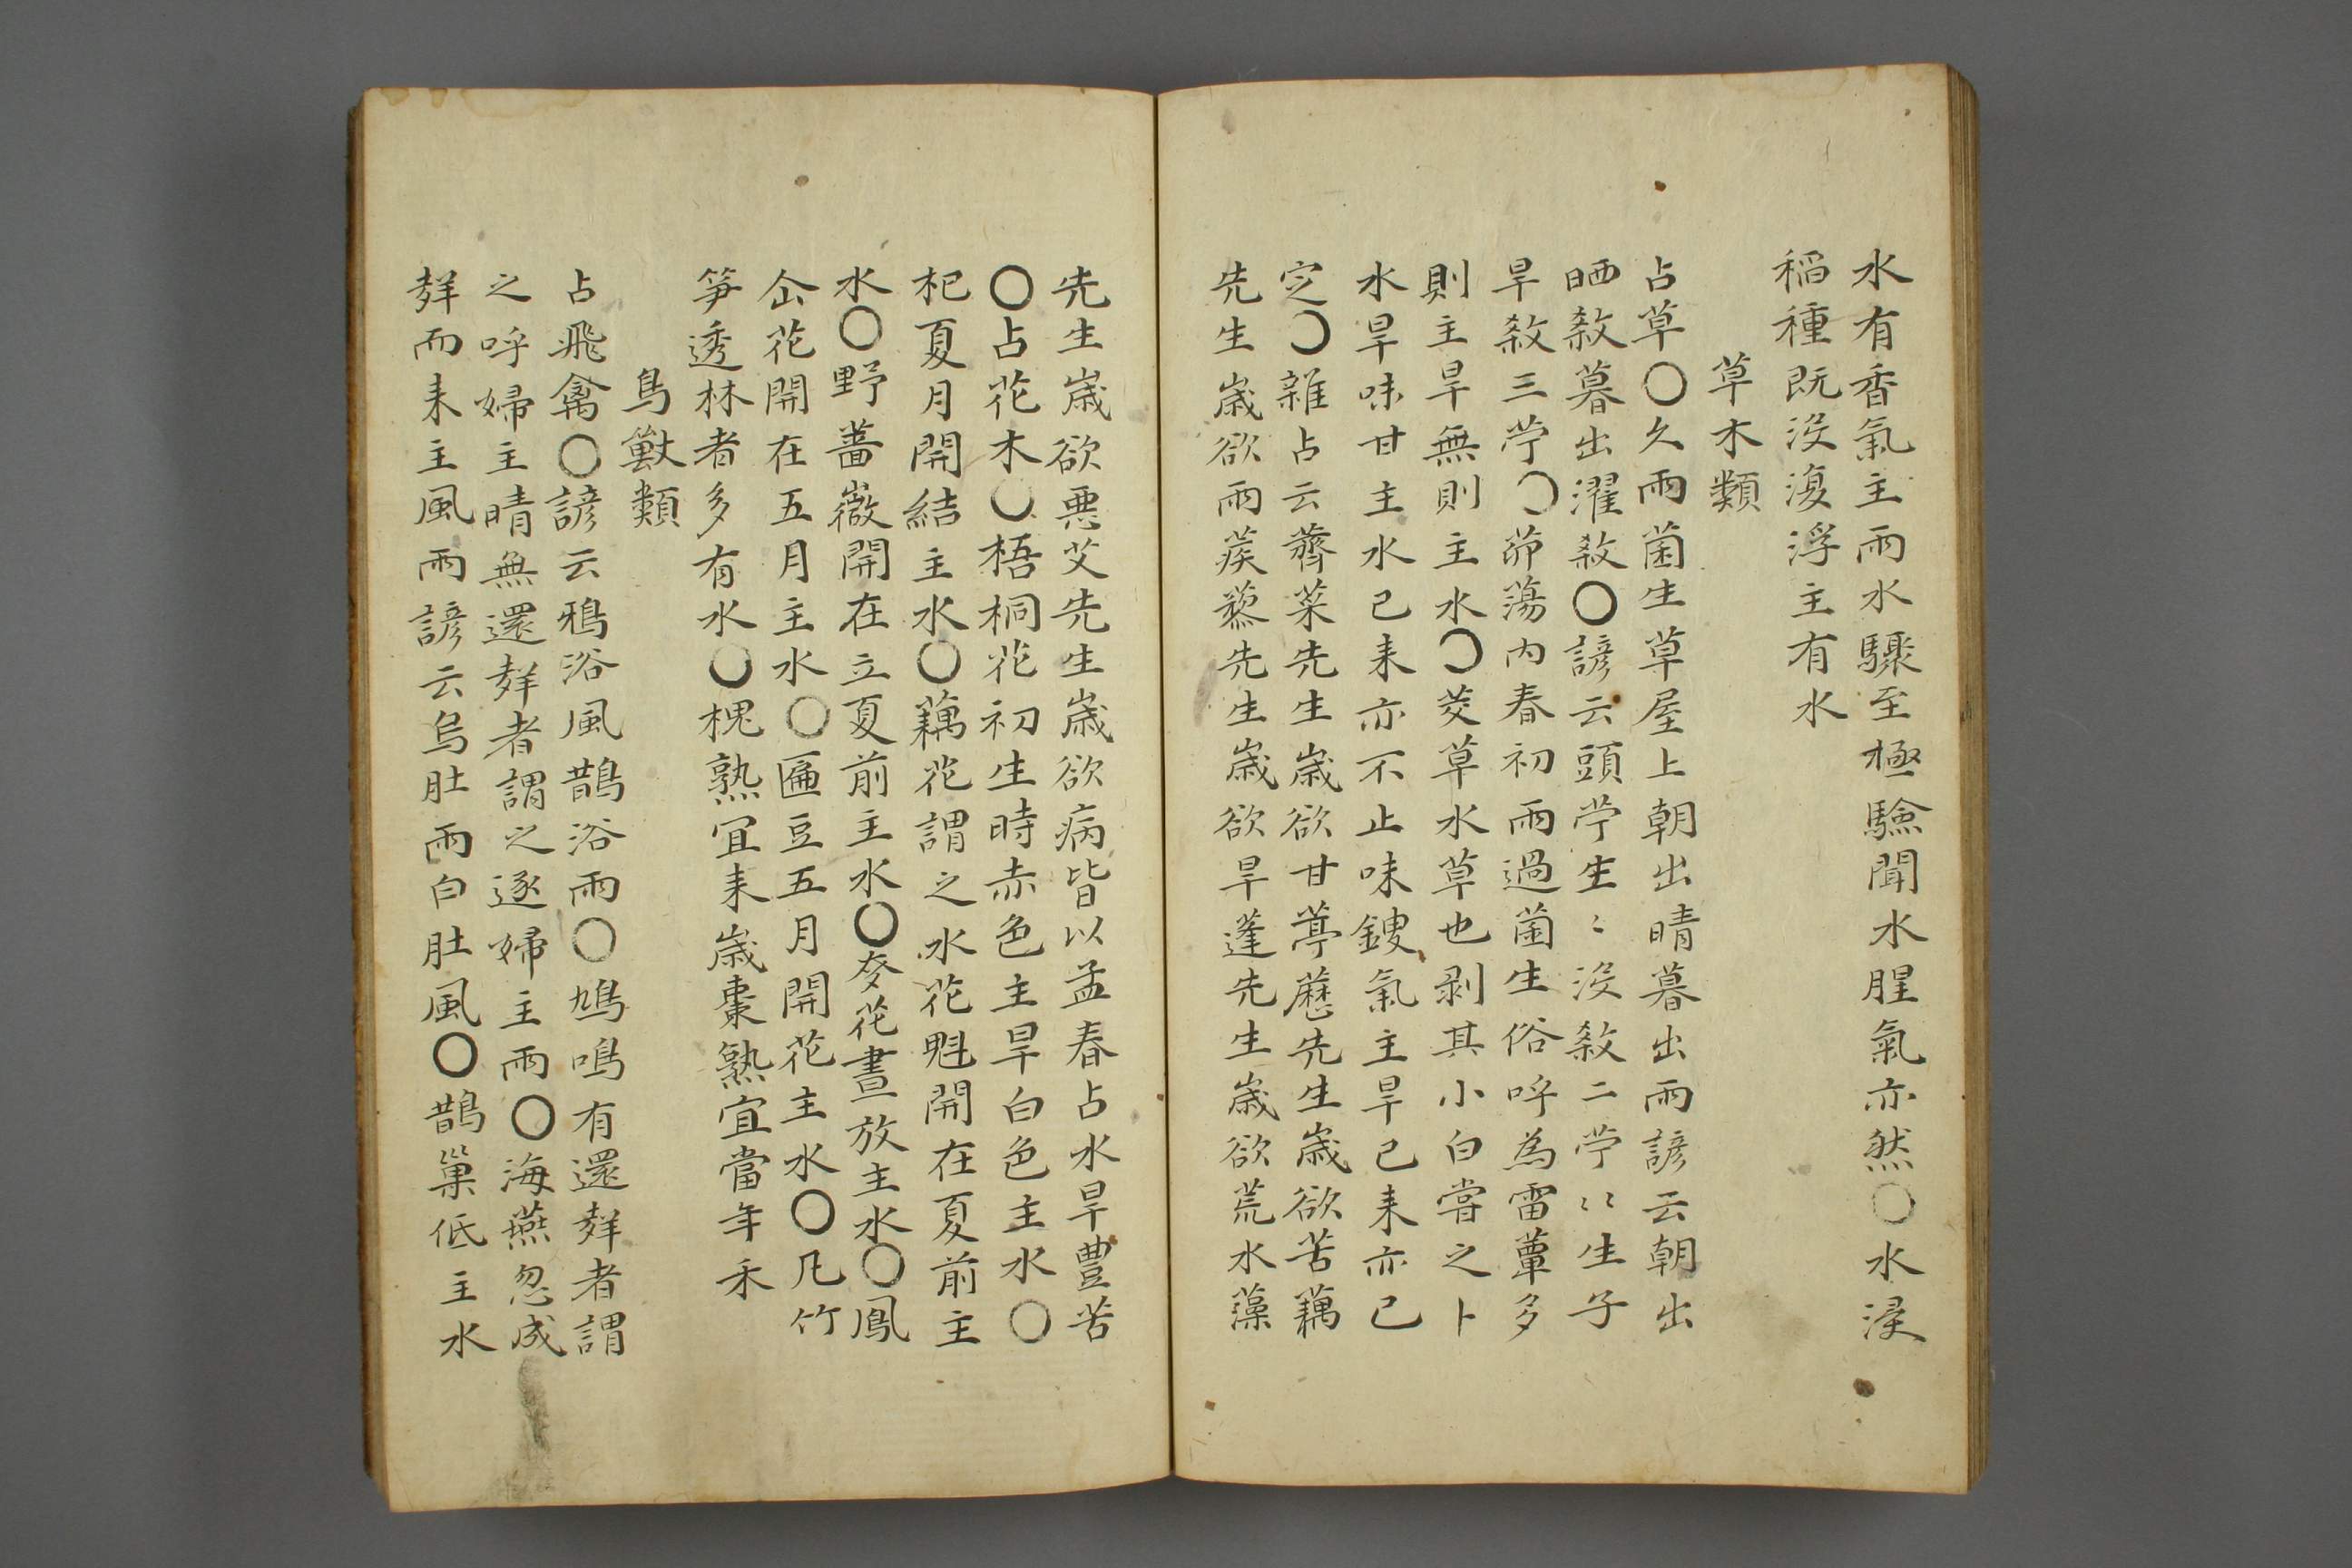 水有香氣主雨水驟至極驗聞水腥氣亦然〇水浸
稻種既沒復浮主有水
草木類
占草〇久雨菌生草屋上朝出晴暮出雨諺云朝出
晒殺暮出濯殺〇諺云頭苧生〻沒殺二苧〻生子
旱殺三苧〇茆蕩内春初雨過菌生俗呼為雷蕈多
則主旱無則主水〇茭草水草也剥其小白嘗之卜
水旱味甘主水已来亦不止味餿氣主旱已来亦已
定〇雜占云薺菜先生歳欲甘葶藶先生歳欲苦藕
先生歳欲雨蒺藜先生歳欲旱蓬先生歳欲荒水藻
先生歳欲悪艾先生歳欲病皆以孟春占水旱豐苦
〇占花木〇梧桐花初生時赤色主旱白色主水〇
杞夏月開結主水〇藕花謂之水花魁開在夏前主
水〇野薔薇開在立夏前主水〇麥花晝放主水〇鳳
仚花開在五月主水〇匾豆五月開花主水〇凡竹
笋透林者多有水〇槐熟宜来歳棗熟宜當年禾
鳥獸類
占飛禽〇諺云鴉浴風鵲浴雨〇鳩鳴有還聲者謂
之呼婦主晴無還聲者謂之逐婦主雨〇海燕忽成
群而来主風雨諺云烏肚雨白肚風〇鵲巢低主水